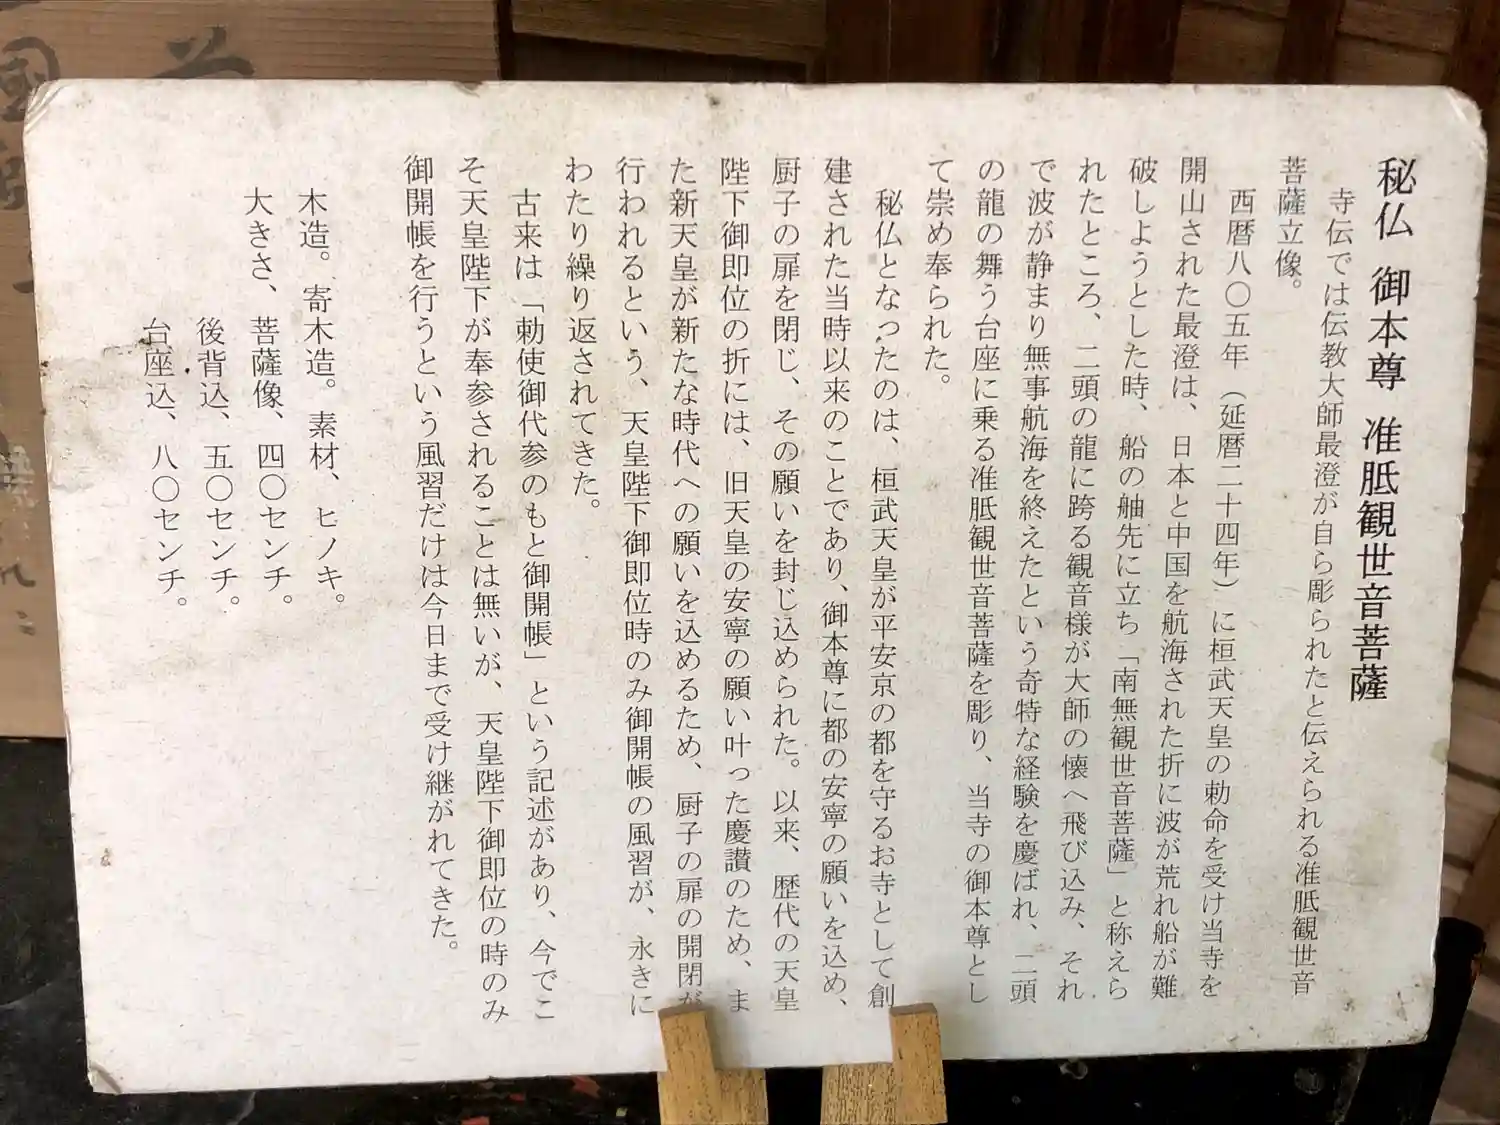 秘仏 御本尊 准胝観世音菩薩
寺伝では伝教大師最澄が自ら彫られたと伝えられる准胝観世音
菩薩立像。
西暦八〇五年（延暦二十四年）に桓武天皇の勅命を受け当寺を
開山された最澄は、日本と中国を航海された折に波が荒れ船が難
破しようとした時、船の舳先に立ち「南無観世音菩薩」と称えら
れたところ、二頭の龍に跨る観音様が大師の懐へ飛び込み、それ
で波が静まり無事航海を終えたという奇特な経験を慶ばれ、二頭
の龍の舞う台座に乗る准胝観世音菩薩を彫り、当寺の御本尊とし
て崇め奉られた。
秘仏となったのは、桓武天皇が平安京の都を守るお寺として創
建された当時以来のことであり、御本尊に都の安寧の願いを込め、
厨子の扉を閉じ、その願いを封じ込められた。以来、歴代の天皇
陛下御即位の折には、旧天皇の安寧の願い叶った慶讃のため、ま
た新天皇が新たな時代への願いを込めるため、厨子の扉の開閉が
行われるという、天皇陛下御即位時のみ御開帳の風習が、永きに
わたり繰り返されてきた。
古来は「勅使御代参のもと御開帳」という記述があり、今でこ
そ天皇陛下が奉参されることは無いが、天皇陛下御即位の時のみ
御開帳を行うという風習だけは今日まで受け継がれてきた。
木造。寄木造。素材、ヒノキ。
大きさ、菩薩像、四〇センチ。
後背込、五〇センチ。
台座込、八〇センチ。